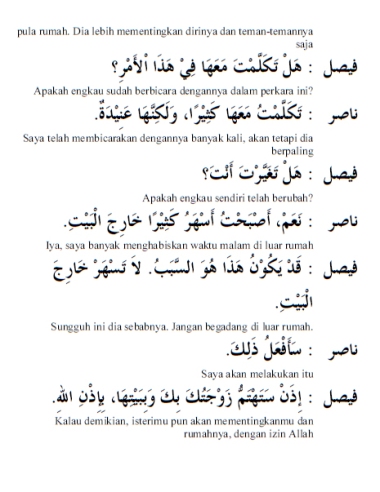 pula rumah. Dia lebih mementingkan dirinya dan teman-temannya
saja
فيصل : هَلْ تَكَلَّمْتَ مَعَهَا فِيْ هَذَا اْلأَمْرِ؟
Apakah engkau sudah berbicara dengannya dalam perkara ini?
ناصر : تَكَلَّمْتُ مَعَهَا كَثِيْرًا، وَلَكِنَّهَا عَنِيْدَةٌ.
Saya telah membicarakan dengannya banyak kali, akan tetapi dia
berpaling
فيصل : هَلْ تَغَيَّرْتَ أَنْتَ؟
Apakah engkau sendiri telah berubah?
ناصر : نَعَمْ، أَصْبَحْتُ أَسْهَرُ كَثِيْرًا خَارِجَ الْبَيْتِ.
Iya, saya banyak menghabiskan waktu malam di luar rumah
فيصل : قَدْ يَكُوْنُ هَذَا هُوَ السَّبَبُ. لاَ تَسْهَرْ خَارِجَ
الْبَيْتِ.
Sungguh ini dia sebabnya. Jangan begadang di luar rumah.
ناصر : سَأَفْعَلُ ذَلِكَ.
Saya akan melakukan itu
فيصل : إِذَنْ سَتَهْتَمُّ زَوْجَتُكَ بِكَ وَبِبَيْتِهَا، بِإِذْنِ الله.
Kalau demikian, isterimu pun akan mementingkanmu dan
rumahnya, dengan izin Allah